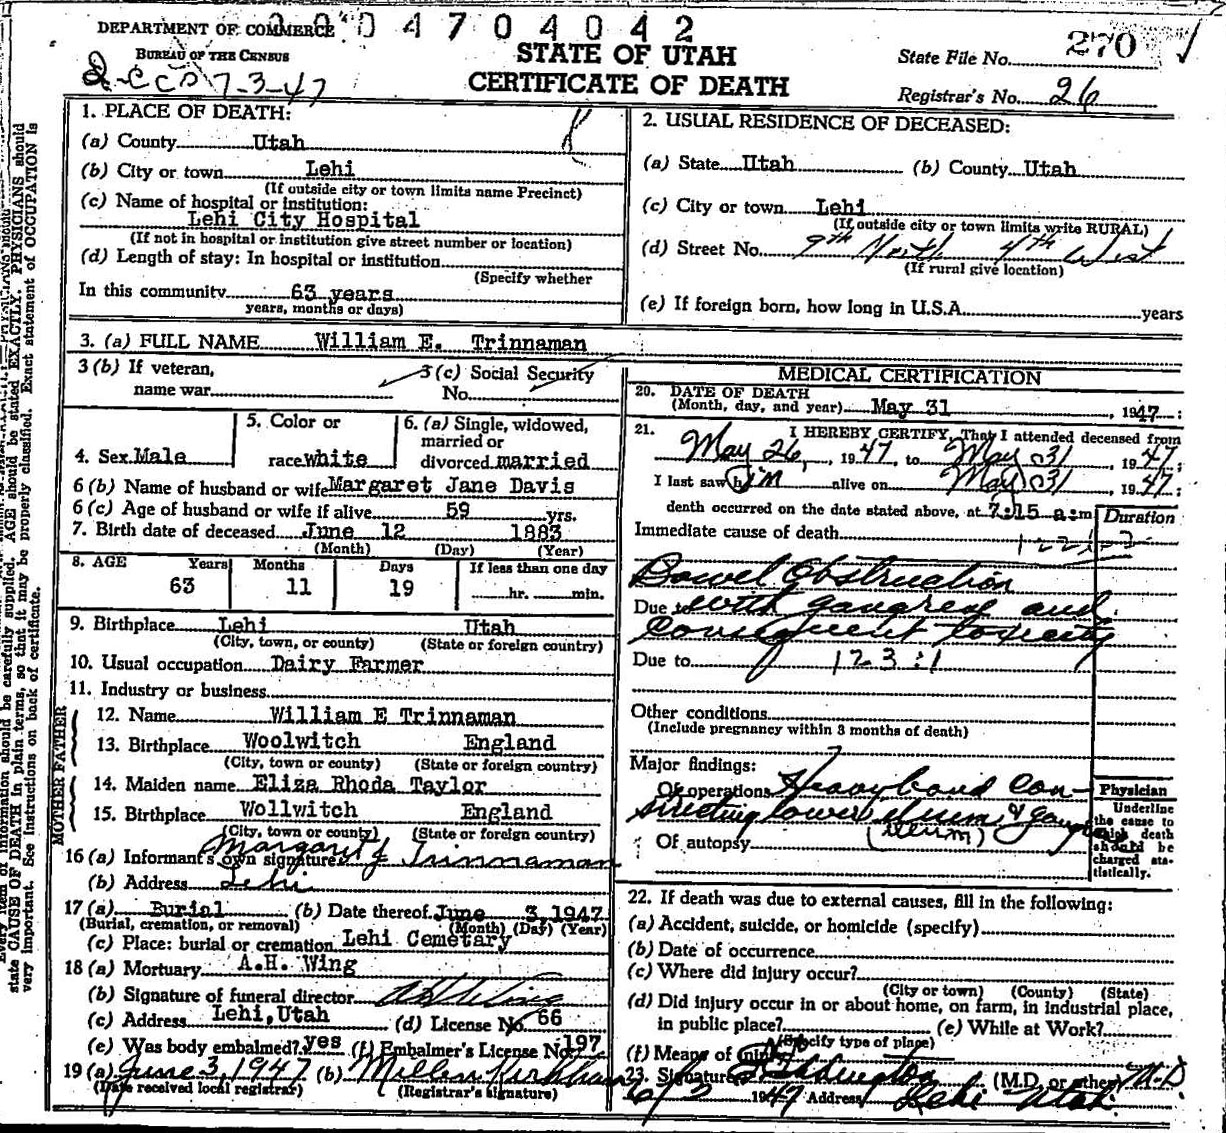 DEPARTMENT OF COMMERCE
BUREAU OF THE CENSUS
7-3-47
0 4 7 0 4 0 4 2
STATE OF UTAH
CERTIFICATE OF DEATH
State File No. 270
Registrar's No. 26
1. PLACE OF DEATH:
(a) County Utah
(b) City or town Lehi
(If outside city or town limits name Precinct)
(c) Name of hospital or institution:
Lehi City Hospital
(If not in hospital or institution give street number or location)
(d) Length of stay: In hospital or institution
(Specify whether
In this community 63 years
years, months or days)
2. USUAL RESIDENCE OF DECEASED:
(a) State Utah (b) County Utah
(c) City or town Lehi
(If outside city or town limits write RURAL)
(d) Street No. 9th North 4th West
(If rural give location)
(e) If foreign born, how long in U.S.A. years
3. (a) FULL NAME William E. Trinnaman
3 (b) If veteran,
name war
3 (c) Social Security
No.
4. Sex Male
5. Color or
race white
6. (a) Single, widowed,
married or
divorced married
6 (b) Name of husband or wife Margaret Jane Davis
6 (c) Age of husband or wife if alive 59 yrs.
7. Birth date of deceased June 12 1883
(Month) (Day) (Year)
8. AGE Years Months Days If less than one day
63 11 19 hr. min.
9. Birthplace Lehi Utah
(City, town, or county) (State or foreign country)
10. Usual occupation Dairy Farmer
11. Industry or business
FATHER
12. Name William E Trinnaman
13. Birthplace Woolwitch England
(City, town, or county) (State or foreign country)
MOTHER
14. Maiden name Eliza Rhoda Taylor
15. Birthplace Wollwitch England
(City, town or county) (State or foreign country)
16 (a) Informant's own signature Margaret J Trinnaman
(b) Address Lehi
17 (a) Burial (b) Date thereof June 3, 1947
(Burial, cremation, or removal) (Month) (Day) (Year)
(c) Place: burial or cremation Lehi Cemetary
18 (a) Mortuary A.H. Wing
(b) Signature of funeral director AH Wing
(c) Address Lehi, Utah (d) License No. 66
(e) Was body embalmed? yes (f) Embalmer's License No. 197
19 (a) June 3, 1947 (b) Kirkham
(Date received local registrar) (Registrar's signature)
MEDICAL CERTIFICATION
20. DATE OF DEATH
(Month, day, and year) May 31, 1947;
21. I HEREBY CERTIFY, That I attended deceased from
May 26, 1947, to May 31 1947;
I last saw him alive on May 31, 1947;
death occurred on the date stated above, at 7:15 a.m
Duration
Immediate cause of death
Bowel Obstruction
Due to with gangrene and
Consequent toxicity
Due to 123:1
Other conditions
(Include pregnancy within 3 months of death)
Major findings:
Of operations Heavy band con-
stricting lower ileum &
(ileum)
Of autopsy
Physician
Underline
the cause to
which death
should be
charged sta-
tistically.
22. If death was due to external causes, fill in the following:
(a) Accident, suicide, or homicide (specify)
(b) Date of occurrence
(c) Where did injury occur?
(City or town) (County) (State)
(d) Did injury occur in or about home, on farm, in industrial place,
in public place? (e) While at Work?
(Specify type of place)
(f) Means of injury
23. Signature Eddington (M.D. or other) M.D
6/2 1947 Address Lehi Utah
should be carefully supplied. AGE should be stated EXACTLY. PHYSICIANS should
state CAUSE OF DEATH in plain terms, so that it may be properly classified. Exact statement of OCCUPATION is
very important. See instructions on back of certificate.